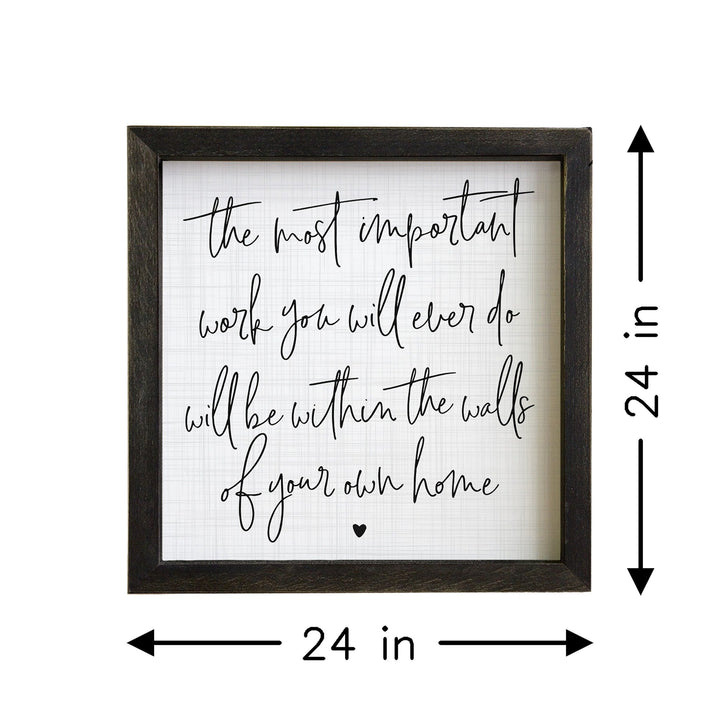 the most important
work you will ever do
will be within the walls
of your own home
24 in
24 in